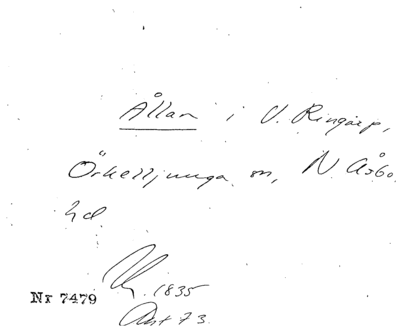 Ållan i V. Ringarp,
Örkelljunga sn, N. Åsbo
hd
1835
Nr 7479
Akt 73.